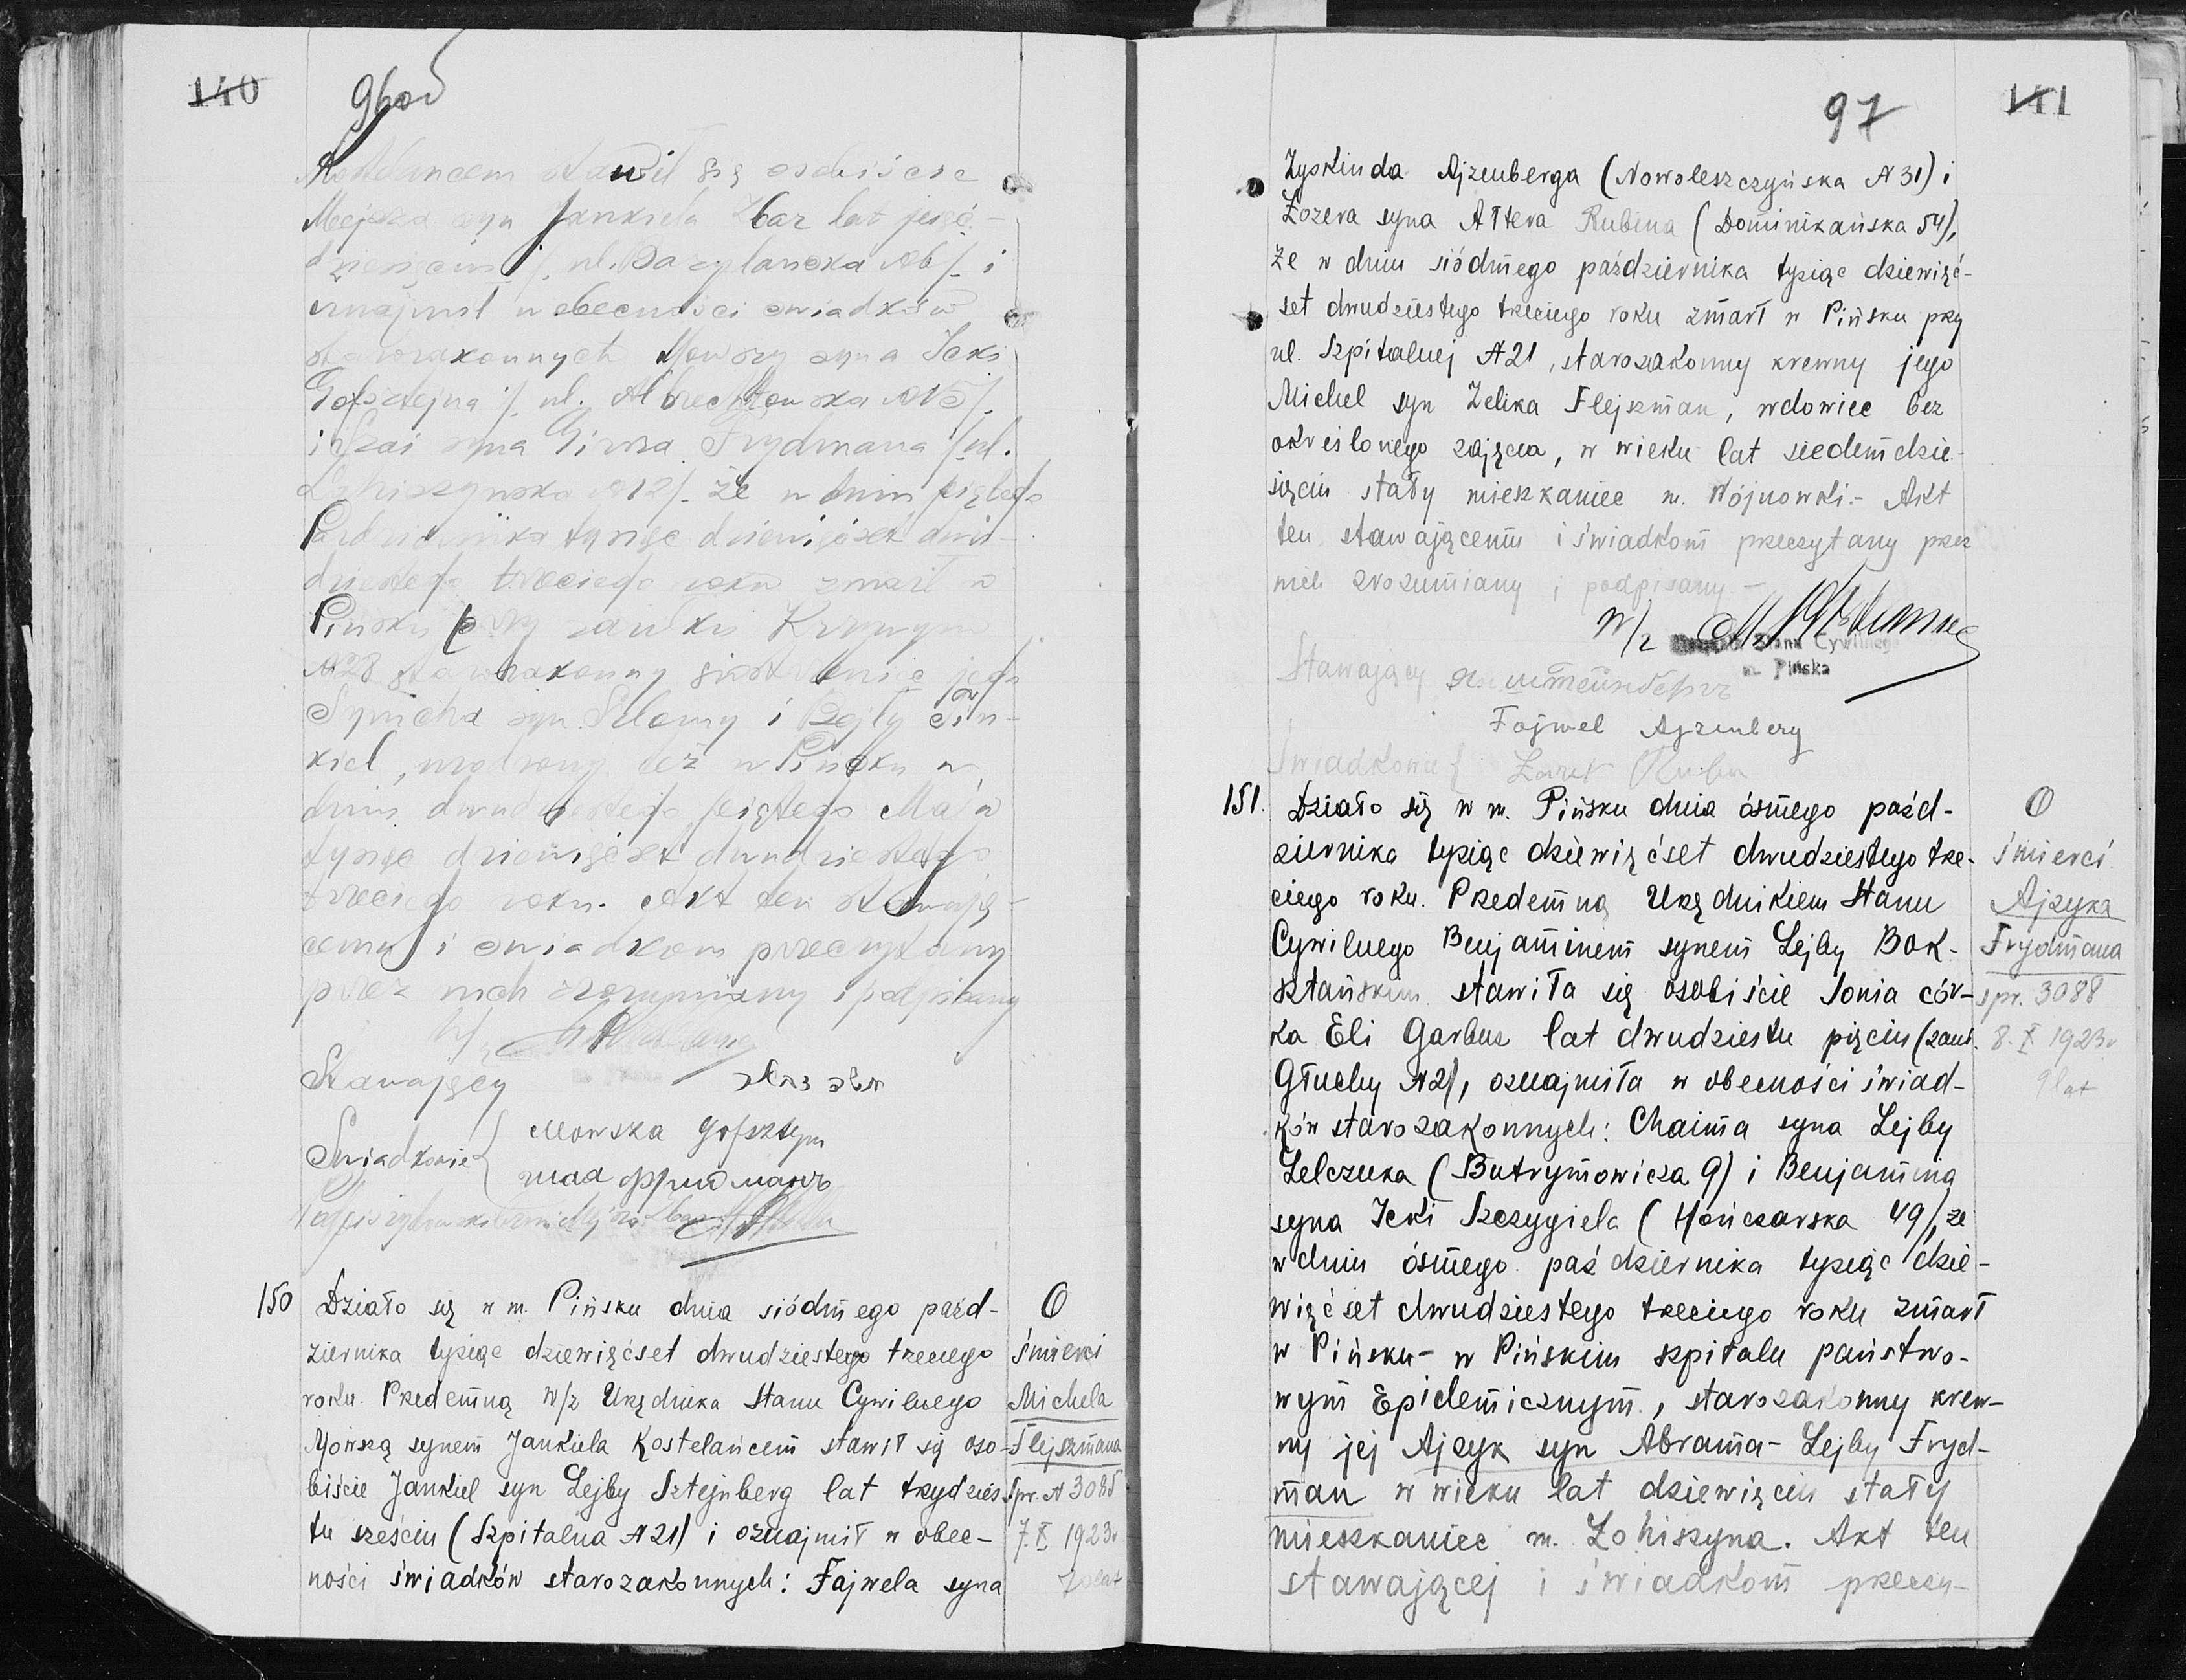 140
96об
stawił się osobiście
syna Jankiela Zbar lat pięć-
dziesięciu /. ul. Bazyljańska №6/. i
oznajmił w obecności świadków
starozakonnych Mowszy syna Icki
Gofsztejna /. ul. Albrechtowska №5/.
i Szai syna Girsza Frydmana /. ul.
№12/. że w dniu piątego
Października tysiąc dziewięćset dwu-
dziestego trzeciego roku zmarł w
Pińsku przy zaułku Krzywym
№28 starozakonny siostrzeniec jego
Symcha syn Szlomy i Bejly
kiel, urodzony też w Pińsku w
dniu dwudziestego piątego Maja
tysiąc dziewięćset dwudziestego
trzeciego roku. Akt ten stawają-
cemu i świadkom przeczytany
przez nich zrozumiany i podpisany
Stawający
Świadkowie { Mowszka Gofsztejn
шая фридманъ
150 Działo się w m. Pińsku dnia siódmego paźd-
ziernika tysiąc dziewięćset dwudziestego trzeciego
roku. Przedemną W/z Urzędnika Stanu Cywilnego
Mowszą synem Jankiela Kostelańcem stawił się oso-
biście Jankiel syn Lejby Sztejnberg lat trzydzies-
tu sześciu (Szpitalna №21) i oznajmił w obec-
ności świadków starozakonnych: Fajwela syna
O
śmierci
Michela
Flejszmana
spr. № 3085
7. X 1923r
70 lat
97
141
Zyskinda Ajzenberga (Nowoleszczyńska №31) i
Łozera syna Altera Rubina (Dominikańska 54),
że w dniu siódmego października tysiąc dziewięć-
set dwudziestego trzeciego roku zmarł w Pińsku przy
ul. Szpitalnej №21, starozakonny krewny jego
Michel syn Zelika Flejszman, wdowiec bez
określonego zajęcia, w wieku lat siedemdzie-
sięciu stały mieszkaniec m. Wójnowki.- Akt
ten stawającemu i świadkom przeczytany przez
nich zrozumiany i podpisany -
W/z
Stanu Cywilnego
m. Pińska
Stawający я. штейнберг
Fajwel Ajzenberg
Świadkowie {
151. Działo się w m. Pińsku dnia ósmego paźd-
ziernika tysiąc dziewięćset dwudziestego trze-
ciego roku. Przedemną Urzędnikiem Stanu
Cywilnego Benjaminem synem Lejby Bok-
sztańskim stawiła się osobiście Sonia cór-
ka Eli Garbuz lat dwudziestu pięciu (zauł.
Głuchy №2/, oznajmiła w obecności świad-
ków starozakonnych: Chaima syna Lejby
Zelczuka (Butrymowicza 9) i Benjamina
syna Icki Szczygiela (Hończarska 49/, że
w dniu ósmego października tysiąc dzie-
więćset dwudziestego trzeciego roku zmarł
w Pińsku- w Pińskim szpitalu państwo-
wym Epidemicznym, starozakonny krew-
ny jej Ajzyk syn Abrama-Lejby Fryd-
man w wieku lat dziewięciu stały
mieszkaniec m. Łohiszyna. Akt ten
stawającej i świadkom przeczy-
O
śmierci
Ajzyka
Frydmana
spr. 3088
8. X 1923r
9 lat